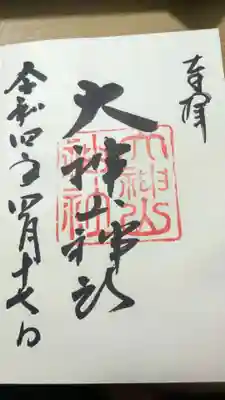 奉拝
大神山神社
大神山
神社
令和四年四月十七日